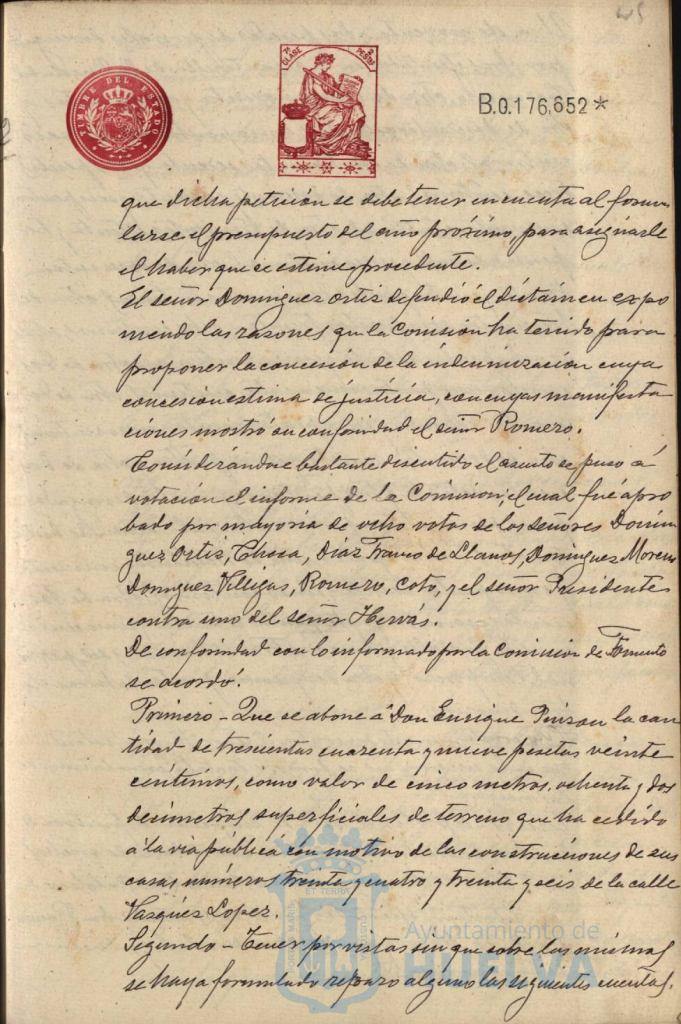 45
TIMBRE DEL ESTADO
1ª CLASE
2 PESETAS
B.0.176,652*
que dicha petición se debe tener en cuenta al formu
larse el presupuesto del año próximo, para asignarle
el haber que se estime procedente.
El señor Dominguez Ortiz defendió el dictámen expo
niendo las razones que la Comisión ha tenido para
proponer la concesión de la indemnización cuya
concesión estima de justicia, con cuyas manifesta
ciones mostró su conformidad el señor Romero.
Considerándose bastante discutido el asunto se puso á
votación el informe de la Comision, el cual fué apro
bado por mayoría de ocho votos de los señores Domin
guez Ortiz, Checa, Díaz Franco de Llanos, Dominguez Moreno
Dominguez Villegas, Romero, Coto, y el señor Presidente
contra uno del señor Hervás.
De conformidad con lo informado por la Comision de Fomento
se acordó.
Primero - Que se abone á Don Enrique Pinzon la can
tidad de trescientas cuarenta y nueve pesetas veinte
centimos, como valor de cinco metros, ochenta y dos
decimetros superficiales de terreno que ha cedido
á la via pública con motivo de las construcciones de sus
casas números treinta y cuatro y treinta y seis de la calle
Vasquez Lopez.
Segundo - Tener por vistas sin que sobre las mismas
se haya formulado reparo alguno las siguientes cuentas.
Ayuntamiento de
HUELVA